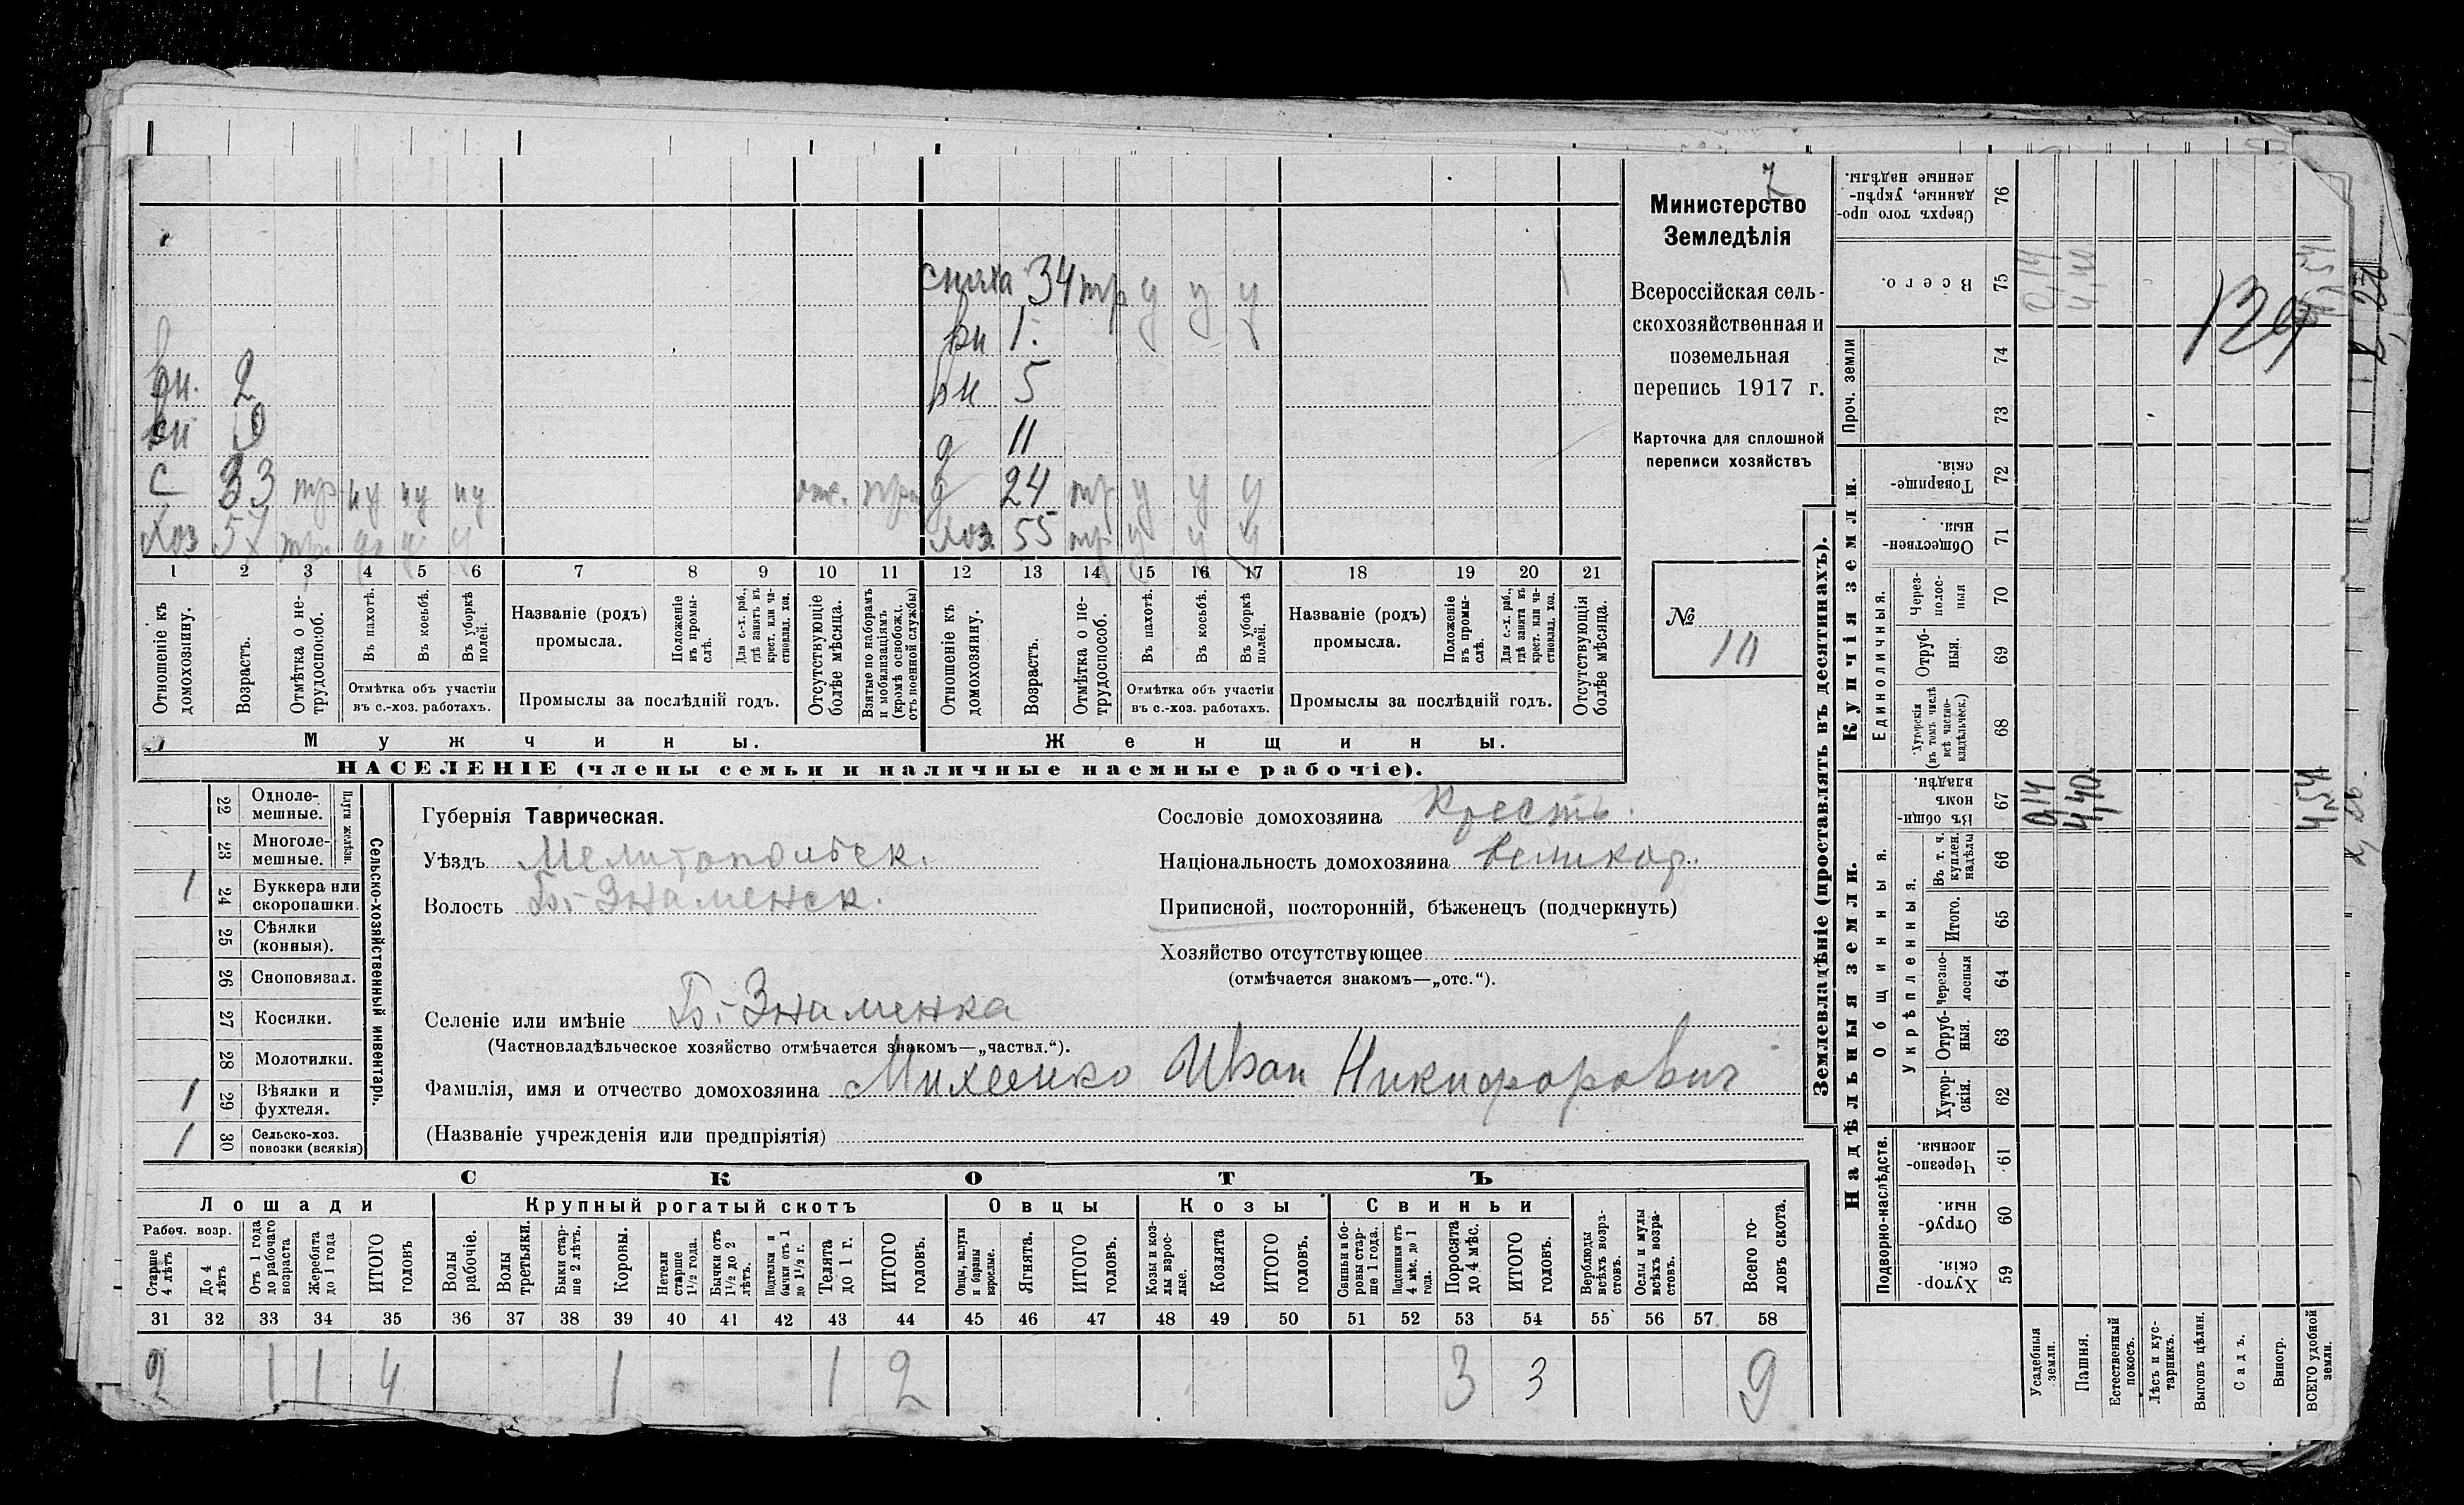 Министерство
Земледѣлія
Всероссійская сель-
скохозяйственная и
поземельная
перепись 1917 г.
Карточка для сплошной
переписи хозяйствъ
№
10
сноха 34 тр у у у
вн 1
вн. 2
вн 5
вн 9
д 11
с 33 тр ну ну ну отс. призв
д 24 тр у у у
хоз 57 тр. у у у
хоз. 55 тр у у у
1 2 3 4 5 6 7 8 9 10 11 12 13 14 15 16 17 18 19 20 21
Отношеніе къ домохозяину.
Возрастъ.
Отмѣтка о не-трудоспособ.
Въ пахотѣ.
Въ косьбѣ.
Въ уборкѣ полей.
Отмѣтка объ участіи въ с.-хоз. работахъ.
Названіе (родъ) промысла.
Положеніе въ промы-слѣ.
Для с.-х. раб., гдѣ занятъ въ крест. или ча-стновлад. хоз.
Промыслы за послѣдній годъ.
Отсутствующіе болѣе мѣсяца.
Взятые по наборамъ и мобилизаціямъ (кромѣ освобожд. отъ военной службы)
Отношеніе къ домохозяину.
Возрастъ.
Отмѣтка о не-трудоспособ.
Въ пахотѣ.
Въ косьбѣ.
Въ уборкѣ полей.
Отмѣтка объ участіи въ с.-хоз. работахъ.
Названіе (родъ) промысла.
Положеніе въ промы-слѣ.
Для с.-х. раб., гдѣ занята въ крест. или ча-стновлад. хоз.
Промыслы за послѣдній годъ.
Отсутствующія болѣе мѣсяца.
Мужчины.
Женщины.
НАСЕЛЕНІЕ (члены семьи и наличные наемные рабочіе).
Сельско-хозяйственный инвентарь.
Плуги желѣзн.
22 Одноле-мешные.
23 Многоле-мешные.
1 24 Буккера или скоропашки.
25 Сѣялки (конныя).
26 Сноповязал.
27 Косилки.
28 Молотилки.
1 29 Вѣялки и фухтеля.
1 30 Сельско-хоз. повозки (всякія)
Губернія Таврическая.
Уѣздъ Мелитопольск.
Волость Б.-Знаменск.
Сословіе домохозяина Крест.
Національность домохозяина великор.
Приписной, посторонній, бѣженецъ (подчеркнуть)
Хозяйство отсутствующее
(отмѣчается знакомъ—„отс.“).
Селеніе или имѣніе Б.-Знаменка
(Частновладѣльческое хозяйство отмѣчается знакомъ—„частвл.“).
Фамилія, имя и отчество домохозяина Михеенко Иван Никифорович
(Названіе учрежденія или предпріятія)
СКОТЪ
Лошади
Крупный рогатый скотъ
Овцы
Козы
Свиньи
Рабоч. возр.
Старше 4 лѣтъ
До 4 лѣтъ
Отъ 1 года до рабочаго возраста
Жеребята до 1 года
ИТОГО головъ
Волы рабочіе.
Волы третьяки.
Быки стар-ше 2 лѣтъ.
Коровы.
Нетели старше 1½ года.
Бычки отъ 1½ до 2 лѣтъ.
Подтелки и бычки отъ 1 до 1½ г.
Телята до 1 г.
ИТОГО головъ.
Овцы, валухи и бараны взрослые.
Ягнята.
ИТОГО головъ.
Козы и коз-лы взрос-лые.
Козлята
ИТОГО головъ.
Свиньи и бо-ровы стар-ше 1 года.
Подсвинки отъ 4 мѣс. до 1 года.
Поросята до 4 мѣс.
ИТОГО головъ.
Верблюды всѣхъ возра-стовъ.
Ослы и мулы всѣхъ возра-стовъ.
Всего го-ловъ скота.
31 32 33 34 35 36 37 38 39 40 41 42 43 44 45 46 47 48 49 50 51 52 53 54 55 56 57 58
2 1 1 4 1 1 2 3 3 9
Землевладѣніе (проставлять въ десятинахъ).
Надѣльныя земли.
Купчія земли.
Проч. земли
Подворно-наслѣдств.
Общинныя.
Укрѣпленныя.
Единоличныя.
Сверхъ того про-данные, укрѣп-ленные надѣлы. 76
Всего. 75 0,14 4,40 4,54
74
73
Товарище-скія. 72
Обществен-ныя 71
Через-полос-ныя 70
Отруб-ныя. 69
Хуторскія (въ томъ числѣ всѣ частно-владѣльческ.) 68
Въ общи-номъ владѣн. 67 0,14 4,40 4,54
Въ т. ч. куплен. надѣлы 66
Итого. 65
Черезпо-лосныя 64
Отруб-ныя. 63
Хутор-скія. 62
Черезпо-лосныя. 61
Отруб-ныя. 60
Хутор-скія. 59
Усадебныя земли.
Пашня.
Естественный покосъ.
Лѣсъ и кус-тарникъ.
Выгонъ цѣлин.
Садъ.
Виногр.
ВСЕГО удобной земли.
129